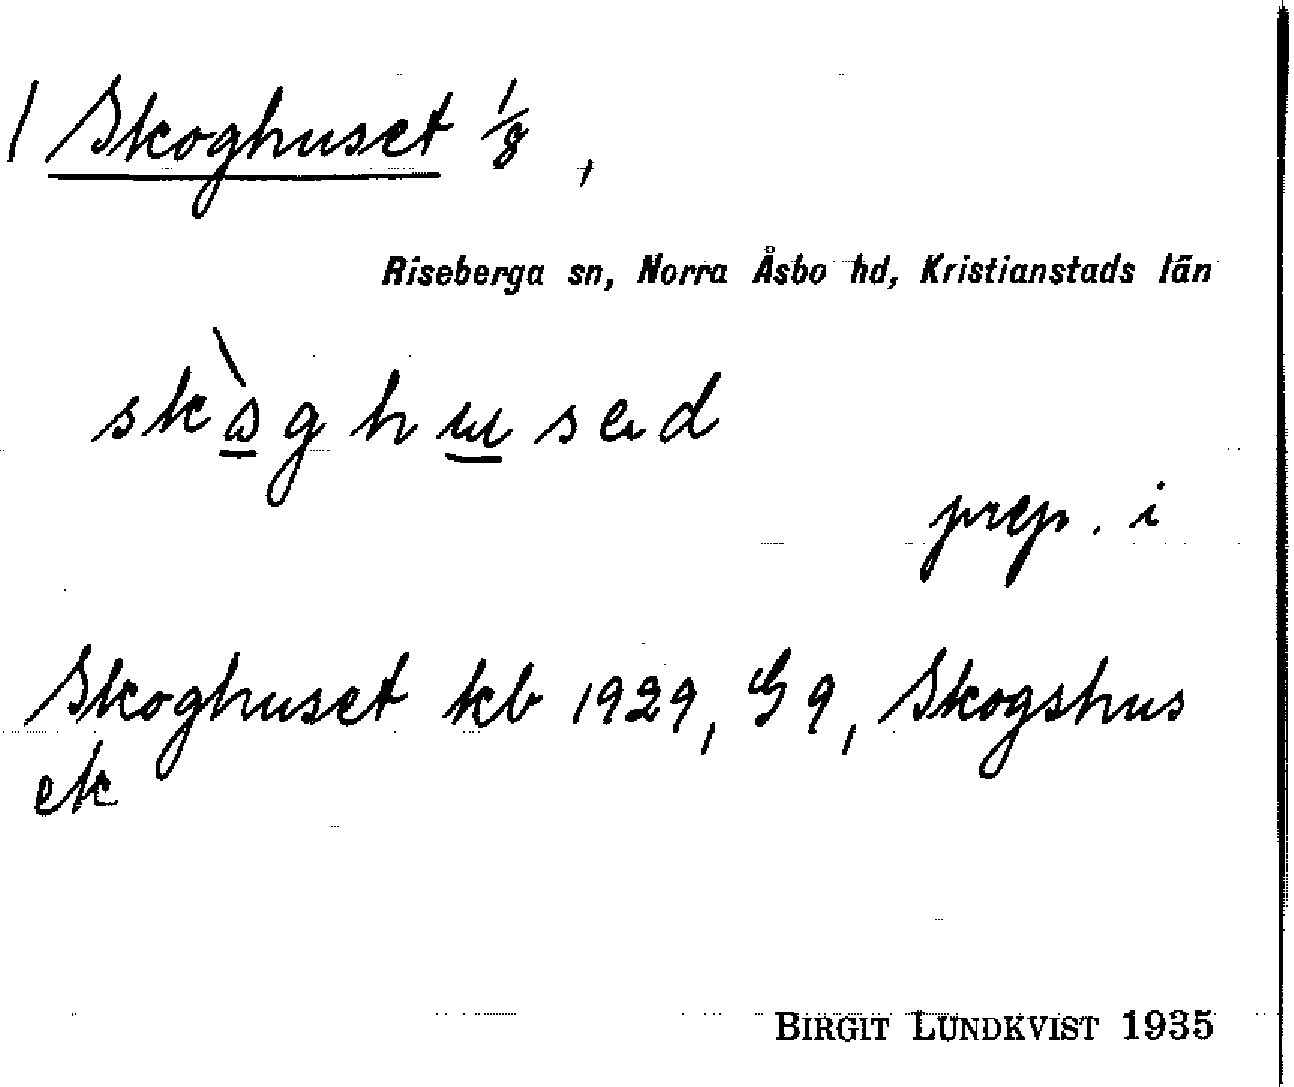 / Skoghuset 1/8 ,
Riseberga sn, Norra Åsbo hd, Kristianstads län
prep. i
Skoghuset kb 1929, G 9, Skogshus
ek
BIRGIT LUNDKVIST 1935